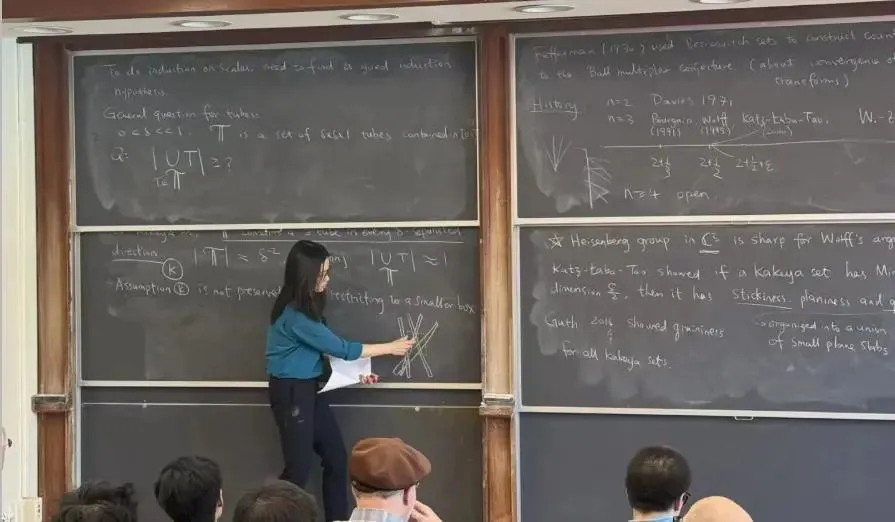 To do induction on scales, need to find a good induction
hypothesis.
General question for tubes:
0 < δ << 1. 𝕋 is a set of δxδx1 tubes contained in
Q: | ∪ T | ≥ ?
T∈𝕋
𝕋 contains a tube in every δ-separated
direction. |𝕋| ≈ δ⁻² | ∪ T | ≈ 1
𝕋
(K)
- Assumption (K) is not restricting to a smaller box
Fefferman used Besicovitch sets to construct
to the Ball multiplier conjecture (about convergence of
transforms)
History n=2 Davies 1971
n=3 Bourgain, Wolff, Katz-Łaba-Tao. W.-
(1991) (1995)
2+1/3 2+1/2 2+1/2+ε
n≥4 open
☆ Heisenberg group in ℂ³ is sharp for Wolff's
Katz-Łaba-Tao showed if a Kakeya set has
dimension 5/2, then it has stickiness, planiness and
Guth 2016 showed graininess → organized into a union
for all Kakeya sets. of small plane slabs